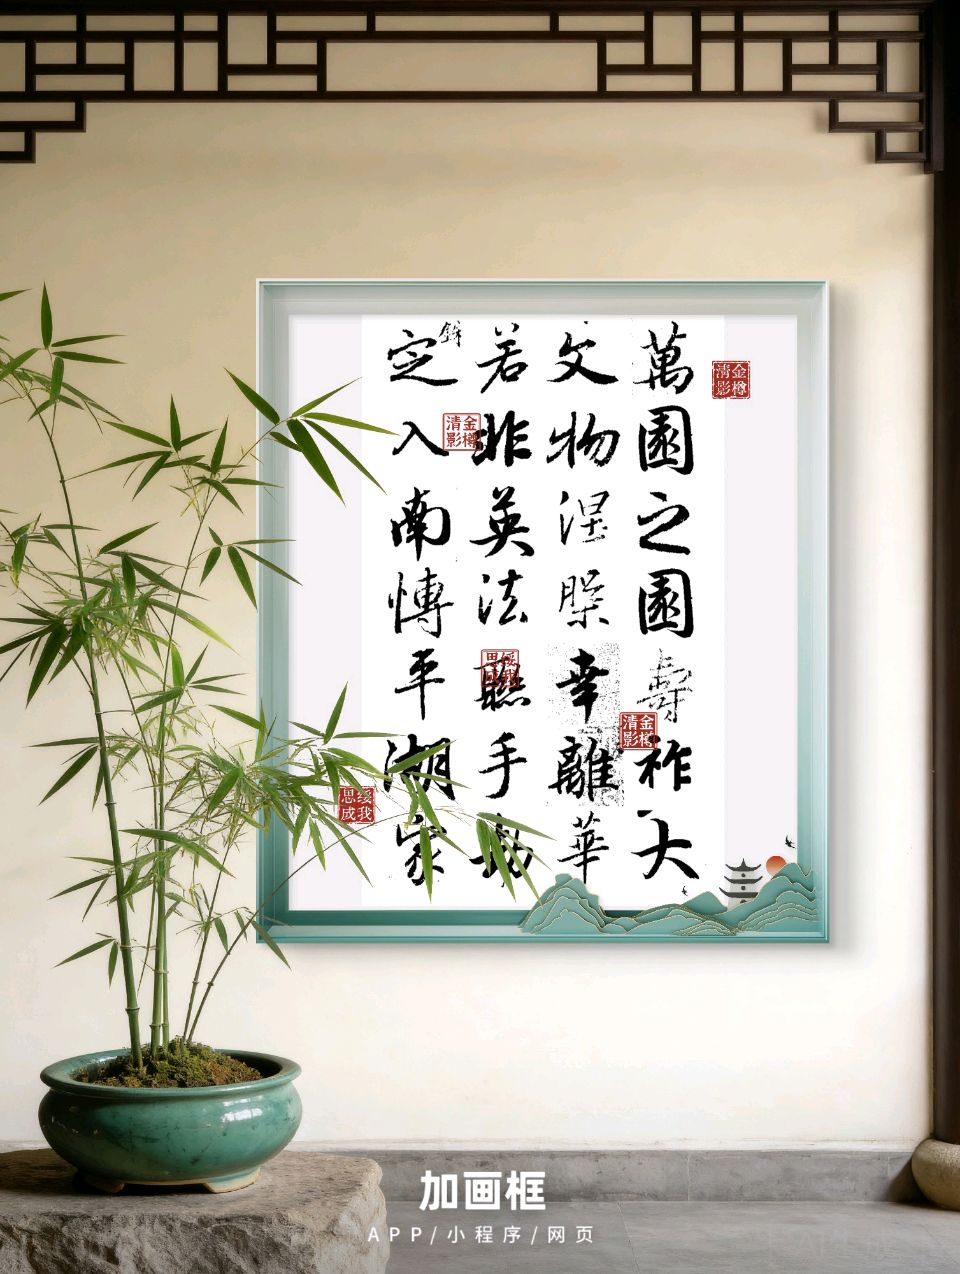 萬園之園壽祚大
文物涅槃幸離華
若非英法聯手劫
定入南愽平湖家
金樽清影
金樽清影
金樽清影
绥我思成
绥我思成
加画框
APP/小程序/网页